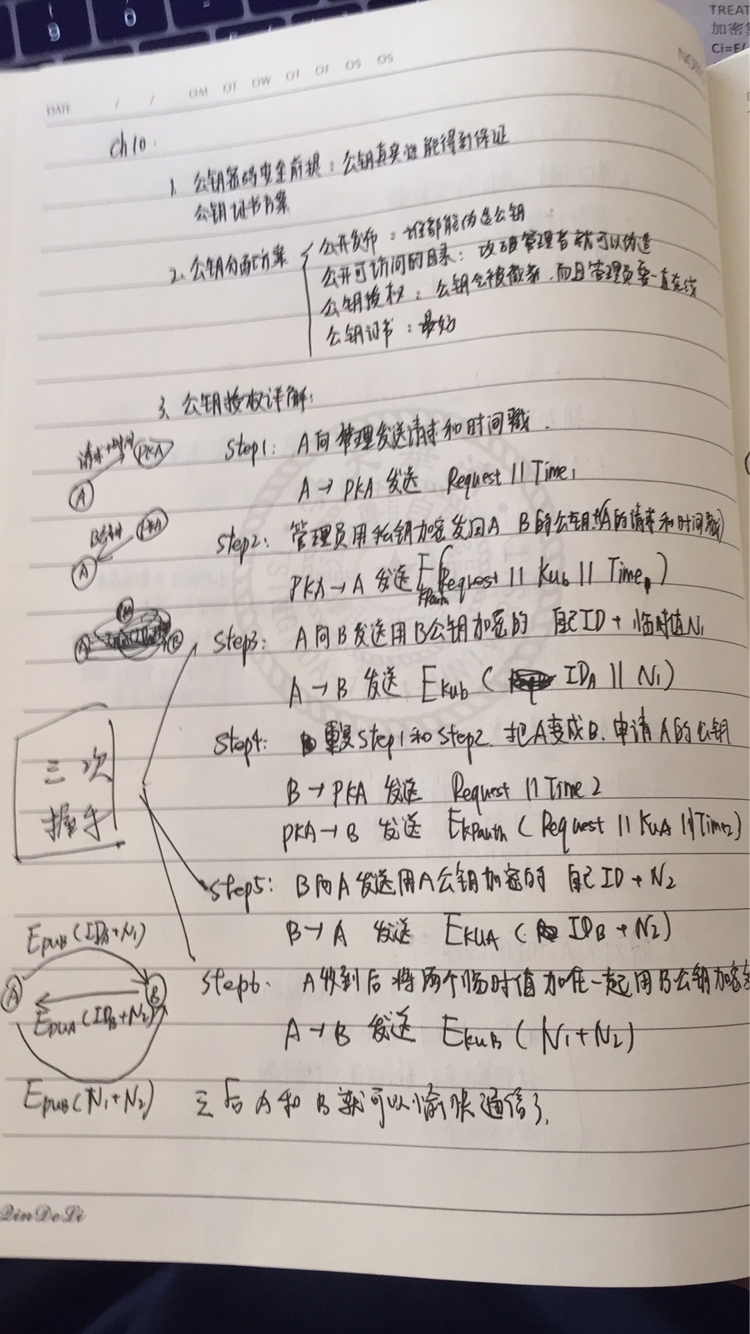 TREAT
加密
Ci=E(
DATE / / OM OT OW OT OF OS OS
NO
Ch10.
1. 公钥密码安全前提：公钥真实性能得到保证
公钥证书方案
2. 公钥分配方案
公开发布：谁都能伪造公钥
公开可访问的目录：攻破管理者就可以伪造
公钥授权：公钥会被截获.而且管理员要一直在线
公钥证书：最好
3. 公钥授权详解：
请求+时间
PKA
A
Step1: A向管理发送请求和时间戳.
A→PKA 发送 Request || Time1
PKA
A
Step2: 管理员用私钥加密发回A B的公钥+A的请求和时间戳)
PKA→A 发送 EKPauth(Request || KuB || Time1)
A
B
Step3: A向B发送用B公钥加密的 自己ID+临时值N1
A→B 发送 EKuB ( IDA || N1)
三次
握手
Step4: 重复Step1和Step2. 把A变成B.申请A的公钥
B→PKA 发送 Request || Time2
PKA→B 发送 EKPauth (Request || KUA || Time2)
Step5: B向A发送用A公钥加密的 自己ID+N2
B→A 发送 EKUA ( IDB + N2)
EPUB(IDA+N1)
A
B
EPUA(IDB+N2)
EPUB(N1+N2)
Step6. A收到后将两个临时值加在一起用B公钥加密
A→B 发送 EKUB (N1+N2)
之后A和B就可以愉快通信了.
QinDeLi